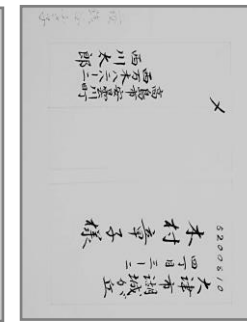 5200810
大津市湖城が丘
四丁目三一ー二
木村
様
〆
高島市安曇川町
西万木八三八ー二
西川太郎